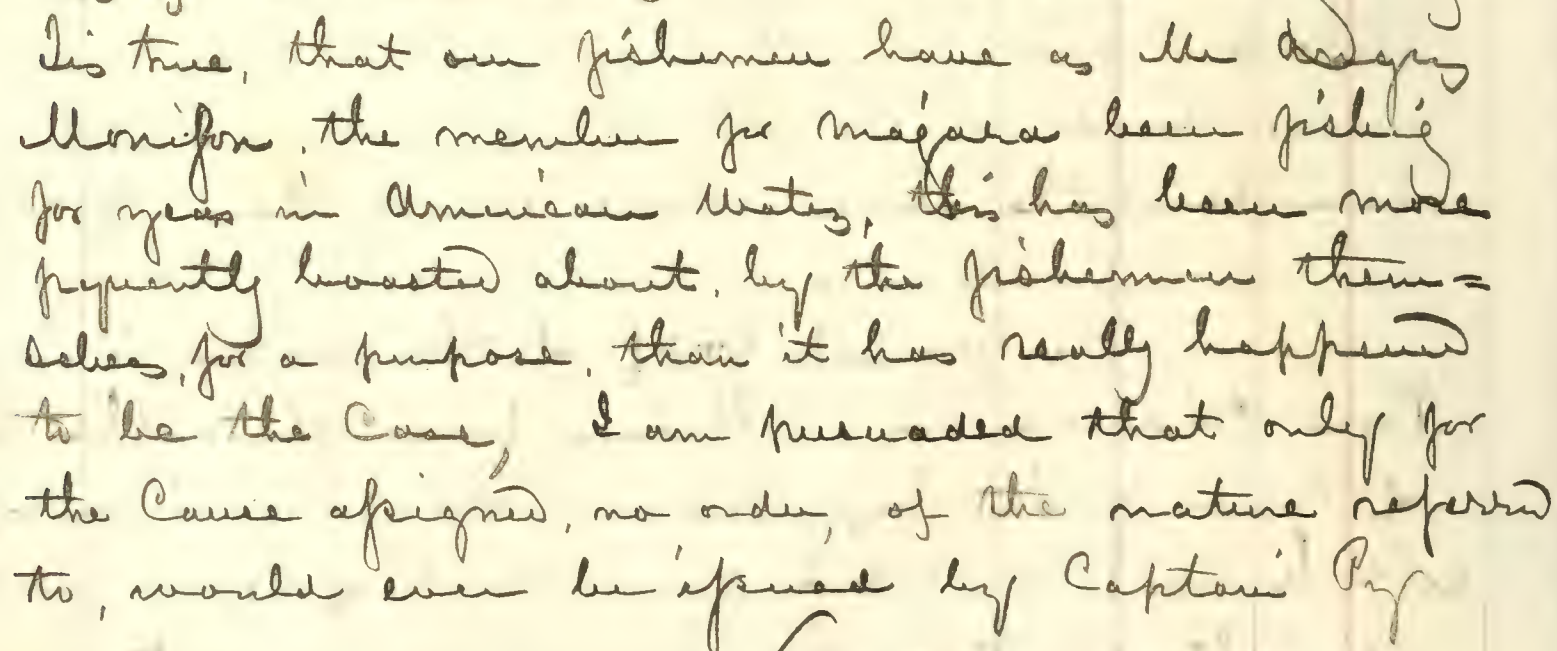 Tis true, that our fishermen have as Mr Angus
Morrison, the member for Niagara been fishing
for years in American Waters, this has been more
frequently boasted about, by the fishermen them=
selves, for a purpose, than it has really happened
to be the Case, I am persuaded that only for
the Cause assigned, no order, of the nature referred
to, would ever be issued by Captain